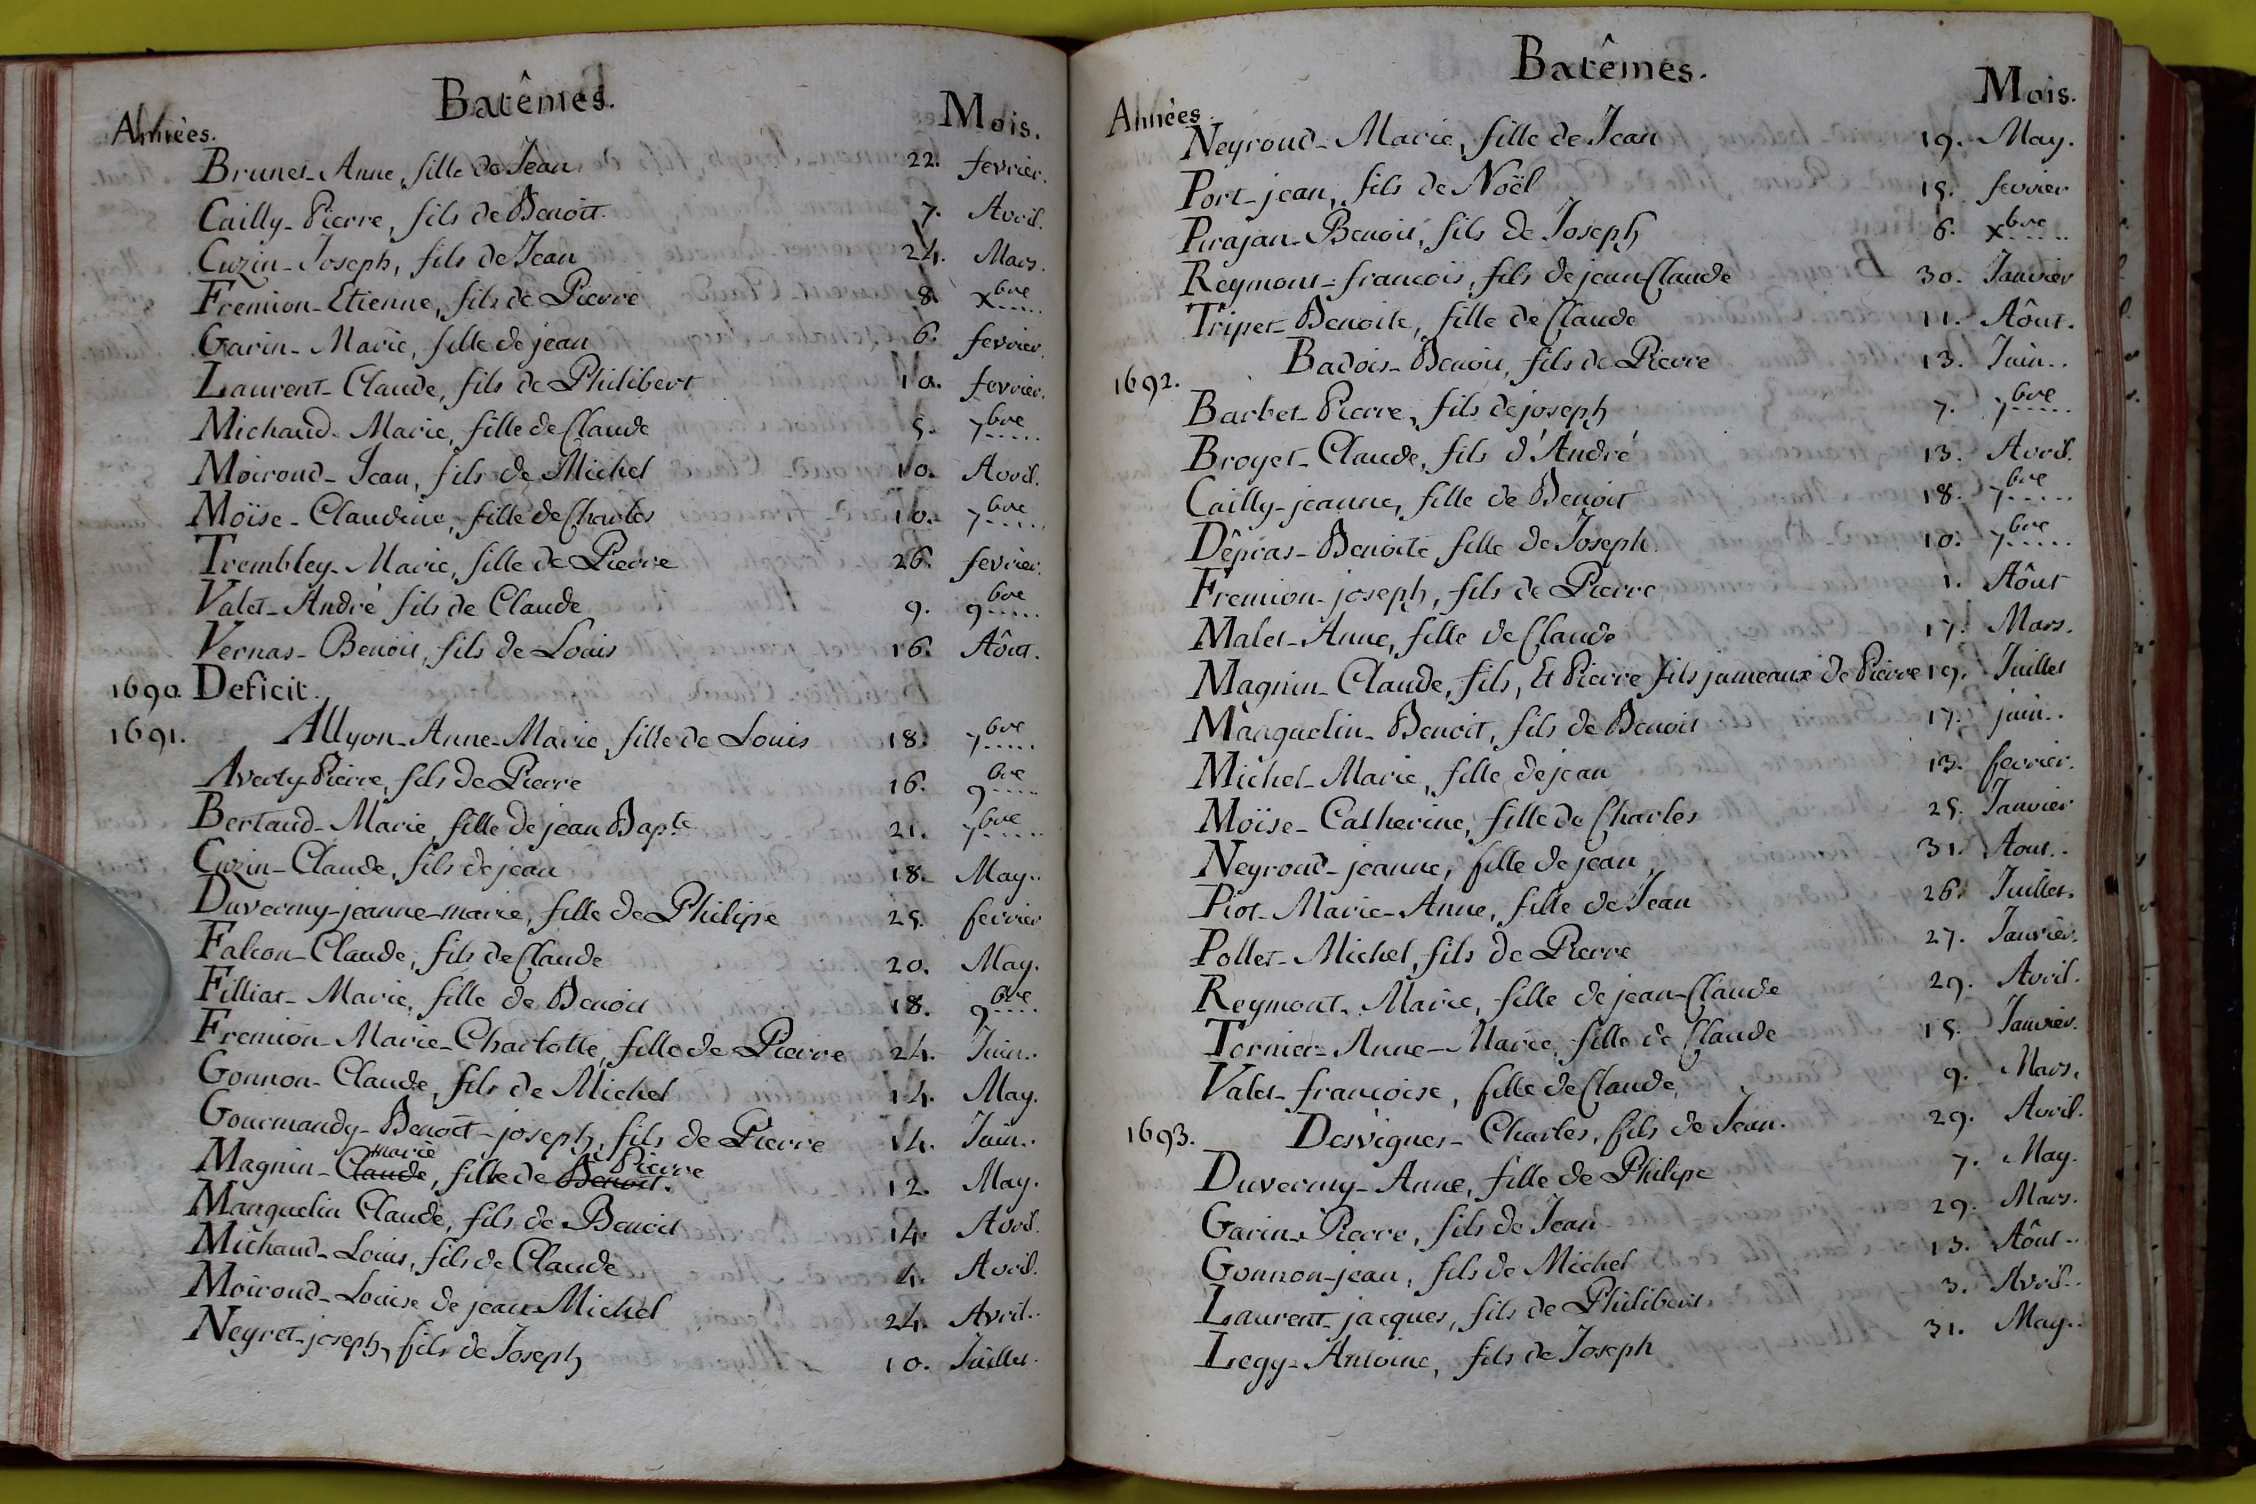 Batêmes.
Années. Mois.
Brunet - Anne, fille de Jean 22. fevrier.
Cailly - Pierre, fils de Benoit. 7. Avril.
Cuzin - Joseph, fils de Jean 24. Mars.
Fremion - Etienne, fils de Pierre 8. xbre.....
Garin - Marie, fille de jean 6. fevrier.
Laurent - Claude, fils de Philibert 10. fevrier.
Michaud - Marie, fille de Claude 5. 7bre.....
Moiroud - Jean, fils de Michel 10. Avril.
Moïse - Claudine, fille de Charles 10. 7bre.....
Trembley - Marie, fille de Pierre 26. fevrier.
Valet - André fils de Claude 9. 9bre.....
Vernas - Benoit, fils de Louis 16. Aôut.
1690. Deficit.
1691. Allyon - Anne - Marie fille de Louis 18. 7bre.....
Averly - Pierre, fils de Pierre 16. 9bre.....
Bertaud - Marie, fille de jean Bapte. 21. 7bre.....
Cuzin - Claude, fils de jean 18. May..
Duvermy - jeanne - marie, fille de Philipe 25. fevrier
Falcon - Claude, fils de Claude 20. May.
Filliat - Marie, fille de Benoit 18. 9bre.....
Fremion - Marie - Charlotte, fille de Pierre 24. Juin..
Gonnon - Claude, fils de Michel 14. May.
Gourmandy - Benoit - joseph, fils de Pierre 14. Juin..
marie Pierre
Magnin - Claude, fille de Benoit. 12. May.
Manquelin Claude, fils de Benoit 14. Avril.
Michaud - Louis, fils de Claude 4. Avril.
Moiroud - Louise de jean Michel 24. Avril..
Neyret - joseph, fils de Joseph 10. Juillet.
Batêmes.
Années. Mois.
Neyroud - Marie, fille de Jean 19. May.
Port - jean, fils de Noël 15. fevrier
Pirajan - Benoit, fils de Joseph 6. xbre.....
Reymont - francois, fils de jean Claude 30. Janvier
Tripet - Benoite, fille de Claude 11. Aôut.
1692. Badois - Benoit, fils de Pierre 13. Juin..
Barbet - Pierre, fils de joseph 7. 7bre.....
Broyet - Claude, fils d'André 13. Avril.
Cailly - jeanne, fille de Benoit 18. 7bre.....
Dêpras - Benoite, fille de Joseph. 10. 7bre.....
Fremion - joseph, fils de Pierre 1. Aôut
Malet - Anne, fille de Claude 17. Mars.
Magnin - Claude, fils, Et Pierre fils jumeaux de Pierre 19. Juillet
Manquelin - Benoit, fils de Benoit 17. juin..
Michel - Marie, fille de jean 13. fevrier.
Moïse - Catherine, fille de Charles 25. Janvier
Neyroud - jeanne, fille de jean 31. Aout..
Piot - Marie - Anne, fille de Jean 26. Juillet.
Pollet - Michel, fils de Pierre 27. Janvier.
Reymont - Marie, fille de jean - Claude 29. Avril.
Tornier - Anne - Marie, fille de Claude 15. Janvier.
Valet - francoise, fille de Claude, 9. Mars.
1693. Desvignes - Charles, fils de Jean. 29. Avril.
Duvermy - Anne, fille de Philipe 7. May.
Garin - Pierre, fils de Jean 29. Mars.
Gonnon - jean, fils de Michel 13. Aôut..
Laurent - jacques, fils de Philibert. 3. Avril..
Legy - Antoine, fils de Joseph 31. May..